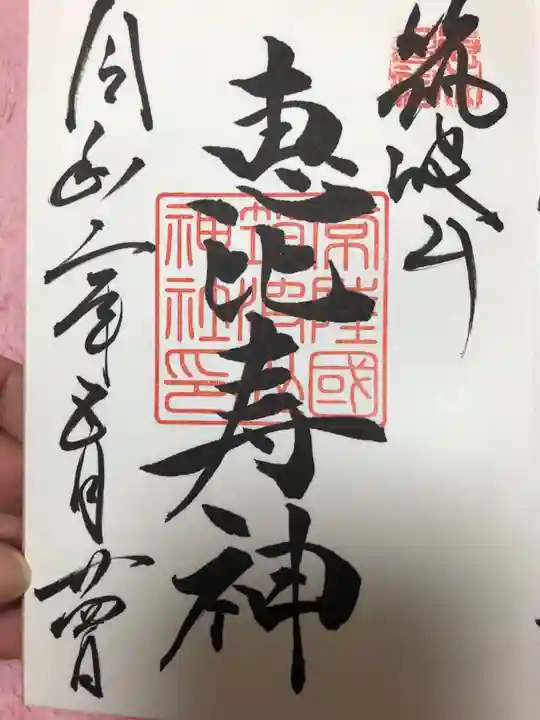 筑波山
恵比寿神
常陸國
筑波山
神社印
令和二年五月廿四日